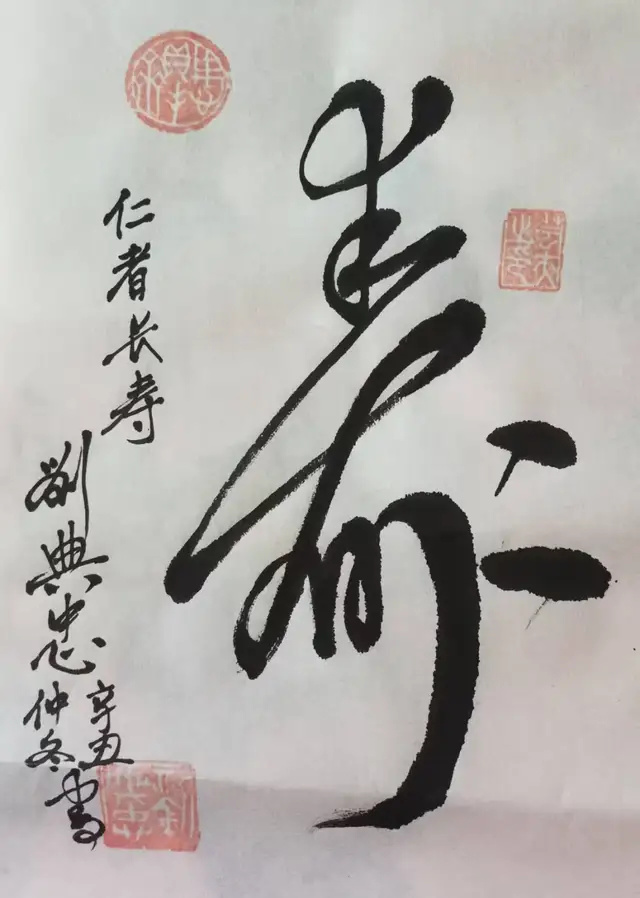 寿
仁者长寿
刘典忠
辛丑
仲冬书